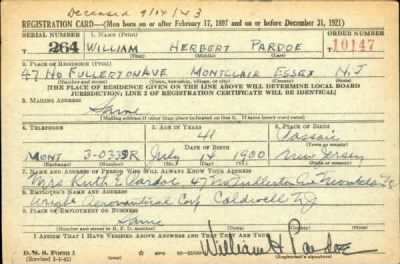 Deceased 9/14/43
REGISTRATION CARD—(Men born on or after February 17, 1897 and on or before December 31, 1921)
SERIAL NUMBER 1. NAME (Print) ORDER NUMBER
T 264 WILLIAM HERBERT PARDOE 10147
(First) (Middle) (Last)
2. PLACE OF RESIDENCE (Print)
47 NO FULLERTON AVE MONTCLAIR ESSEX N.J
(Number and street) (Town, township, village, or city) (County) (State)
[THE PLACE OF RESIDENCE GIVEN ON THE LINE ABOVE WILL DETERMINE LOCAL BOARD
JURISDICTION; LINE 2 OF REGISTRATION CERTIFICATE WILL BE IDENTICAL]
3. MAILING ADDRESS
Same
[Mailing address if other than place indicated on line 2. If same insert word same]
4. TELEPHONE 5. AGE IN YEARS 6. PLACE OF BIRTH
41 Passaic
DATE OF BIRTH (Town or county)
MONT 3-0339R July 14 1900 New Jersey
(Exchange) (Number) (Mo.) (Day) (Yr.) (State or country)
7. NAME AND ADDRESS OF PERSON WHO WILL ALWAYS KNOW YOUR ADDRESS
Mrs Ruth E Pardoe 47 No Fullerton Ave Montclair
8. EMPLOYER'S NAME AND ADDRESS
Wright Aeronautical Corp Caldwell NJ
9. PLACE OF EMPLOYMENT OR BUSINESS
Same
(Number and street or R. F. D. number) (Town)
I AFFIRM THAT I HAVE VERIFIED ABOVE ANSWERS AND THAT THEY ARE TRUE.
D. S. S. Form 1
(Revised 1-1-42) GPO
William H Pardoe